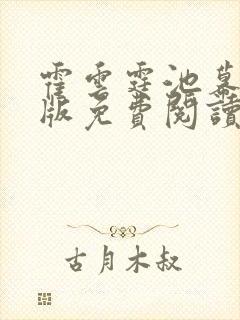 霍雲霆池蔫
版免費閱讀
古月木叔